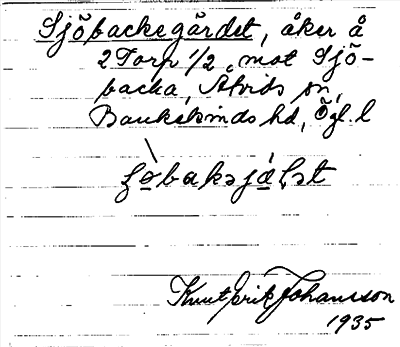 Sjöbackegärdet, åker å
2 Torp 1/2, mot Sjö-
backa, Åtvids sn,
Bankekinds hd, Ögl. l
ʃo̲baksjæ̲ʈst
Knut Erik Johansson
1935